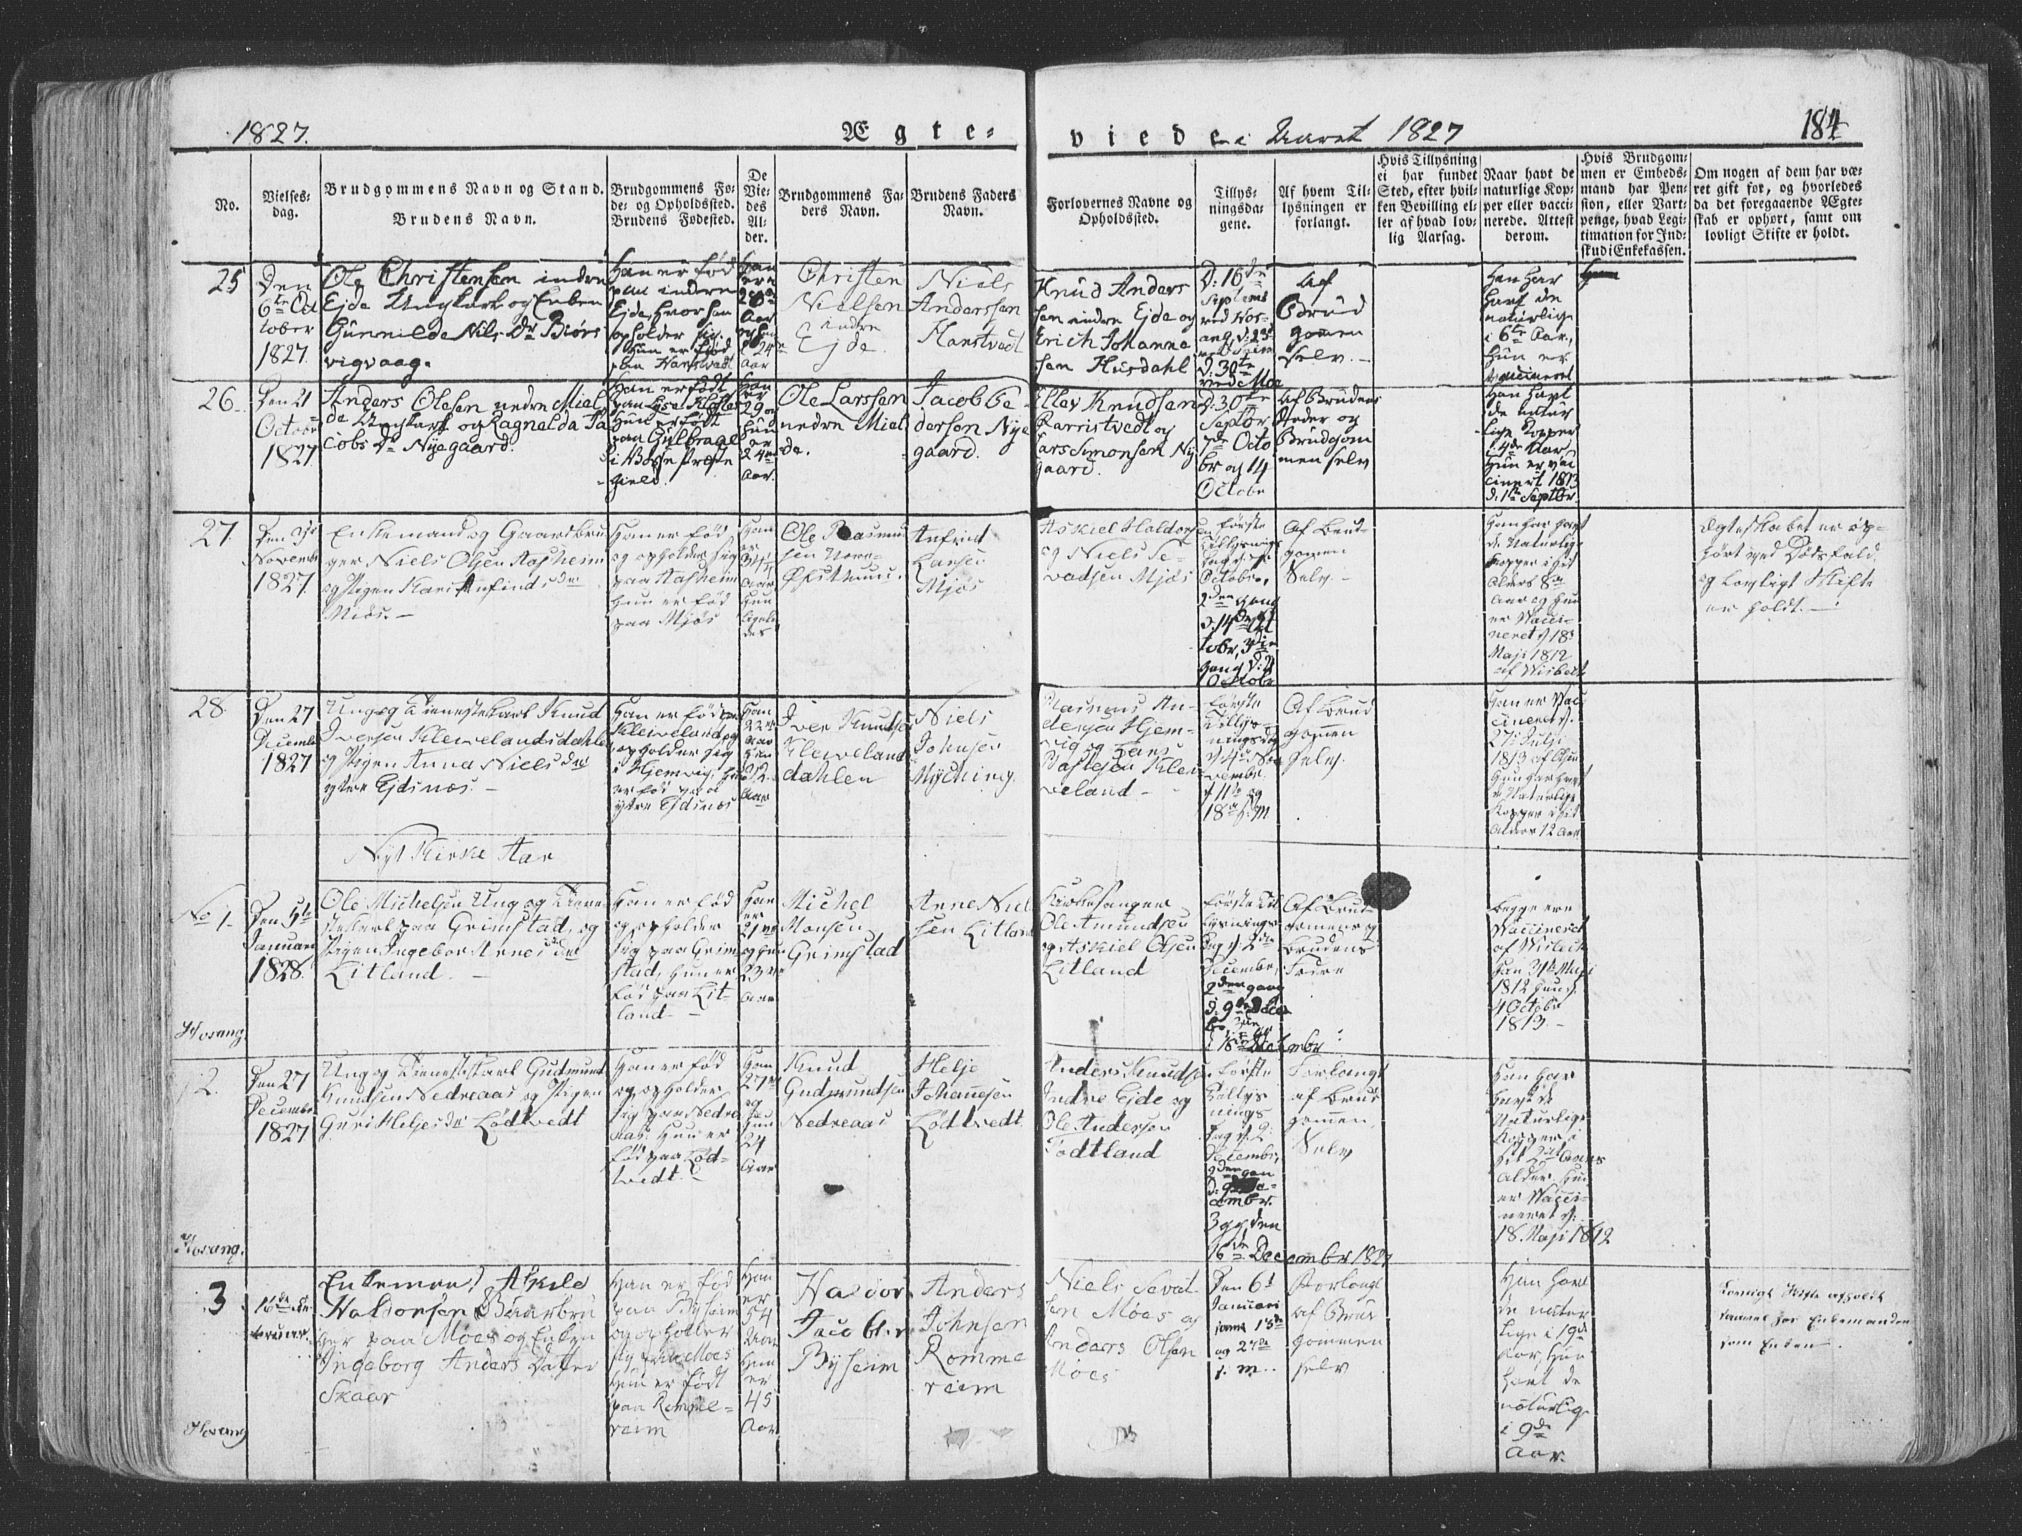 1827.
Ægte-
viede i Aaret 1827
184
No.
Vielses-
dag.
Brudgommens Navn og Stand.
Brudens Navn.
Brudgommens Fø-
de- og Opholdssted.
Brudens Fødested.
De
Vie-
des
Al-
der.
Brudgommens Fa-
ders Navn.
Brudens Faders
Navn.
Forlovernes Navne og
Opholdssted.
Tillys-
ningsda-
gene.
Af hvem Til-
lysningen er
forlangt.
Hvis Tillysning
ei har fundet
Sted, efter hvil-
ken Bevilling el-
ler af hvad lov-
lig Aarsag.
Naar havt de
naturlige Kop-
per eller vacci-
nerede. Attest
derom.
Hvis Brudgom-
men er Embeds-
mand har Pen-
sion, eller Vart-
penge, hvad Legi-
timation for Ind-
skud i Enkekassen.
Om nogen af dem har væ-
ret gift før, og hvorledes
da det foregaaende Ægte-
skab er ophørt, samt om
lovligt Skifte er holdt.
25
Den
6te Oc
tober
1827.
Ole Christensen indre
Ejde Ungkarl og Enken
Gunnilde Nils Dr Biørs
vigvaag.
Han er fød
paa indre
Ejde, hvor han
opholder sig.
Hun er fød
paa Hanstvedt
Han
er
28
Aar
er hun
24
Aar
Christen
Nielsen
indre
Ejde.
Niels
Anderssen
Hanstvedt
Knud Anders
sen indre Ejde og
Erich Johanne
sen Husdahl
D: 16de
Septembr
ved Hos-
ang, d: 23d
D: 30te
ved Moe
Af
Brud
gomen
selv.
Han har
havt de
naturlige
i 6te Aar,
Hun er
vaccineret
26
Den 21
Octobr
1827
Anders Olesen nedre Miel
de Ungkarl og Ragnelda Ja
cobs Dr Nyegaard.
Han er født
paa Lyse Kloster
Hun er født
paa Gulbrage
i Præste
gield.
Han
er
29 og
hun
er
24
Aar.
Ole Larssen
nedre Miel
de.
Jacob Pe-
dersen Nye
gaard.
Ellev Knudsen
Rarristvedt og
Lars Simonsen Ny
gaard.
D: 30te
Septbr
7de Octo
br og 14
Octobr
Af Brudens
Fader og
Brudgom
men selv
Han havt
de natur
lige Kopper
i 4de Aar,
Hun er vac
cinert 1813
d: 1te Septbr.
27
Novembr
1827.
Enkemand og Gaardbru
ger Niels Olsen Aasheim
og Pigen Kari Anfinds dtr
Mjøs.
Han er fød
og opholder sig
paa Aasheim
Hun er fød
paa Mjøs
Han
er
Aar
Hun
ligele
des
Ole Rasmu
sen
Anfind
Larsen
Mjøs
Askiel Haldorsen
og Niels Se-
vadsen Mjøs
første
Tillysnings
dag
Octobr,
2den gang
d: 14de Oc
tobr, 3die
gang d: 21
Octobr
Af Brud-
gomen
Selv.
Han har havt
de Naturlige
Kopper i sit
Alders 8de
Aar og hun
er Vacci-
neret d 18
Maji 1812
Ægteskabet er op-
hørt ved Dødsfald
og Lovligt Skifte
er holdt.
28
Den 27
Decembr
1827
Ung og Tienestekarl Knud
Iversen Klevelandsdahle
og Pigen Anna Niels dtr
ytre Ejdsnæs.
Han er fød paa
Kleveland og
opholder sig
i Hjemvig, hun
er fød paa
ytre Ejdsnæs
Han
22
Aar
Hun
Aar
Iver Knudse
Kleveland
dahlen
Niels
Johnsen
Myching
Rasmus An-
dersen Hjem-
vig og Hans
Kleve
veland
første
Tillys-
ningsdag
d 4de No
vembr
d 11te og
18de s: M
Af Brud
gomen
selv.
Han er Vac
cineret d.
27 Julji
1813
Hun har havt
de Naturlige
Kopper i sit
Alder 12 Aar
Nyt Kirke Aar
No 1.
Den 5te
Januari
1828
Hosang
Ole Michelsen Ung og Tiene
stekarl paa Grimstad, og
Pigen Ingebor Arnes dtr
Litland.
Han er fød
og opholder
sig paa Grim
stad, hun er
fød paa Lit-
land.
Han
er
21
og hun
23
Aar
Michel
Monsen
Grimstad
Arne Niel
sen Litland
Kirkesanger
Ole Amundsen
og Askiel Olsen
Litland
første Til
lysnings
dag d: 2den
Decembr,
2den gang
d: 9de Decem
br 3die
d 16de Decembr
Af Brud-
gomens og
Brudens
Fadre
begge ere
Vaccineret
af
han 31te Maji
1812 hun d
4 Octobr
1813
2.
Den 27
Decembr
1827
Hosang.
Ung og Tienestekarl Gudmund
Knudsen Nedreaas og Pigen
Guri Heljes dtr Lødtvedt
Han er fød
og opholder
sig paa Nedre
Aas. Hun er
fød paa Lød-
tvedt.
Han
27
og
hun
24
Aar
Knud
Gudmundsen
Nedreaas
Helje
Johannesen
Lødtvedt
Anders Knudse
Indre Ejde og
Ole Andersen
Todtland
første
Tillys
nings
dag d: 2
Decembr,
2den gan
d: 9de De-
cembr.
3 gg den
16de December 1827
Forlangt
af Brud
gomen
Selv
Han har
havt de
Naturlige
Kopper i
sit 2det Aars
Alder, hun
er Vacci-
neret d:
18 Maji 1812
3
16de Fe
bruar.
Hosang
Enkemand Askild
Haldorsen Gaarbru
ger paa Møes og Enken
Ingeborg Anders Datter
Skaar
Han er fød
paa Byseim
og opholder
sig paa Møes
Hun er født
paa Romme-
reim
Han
er
54
Aar
Hun
er
45
Aar
Haldor
Jacobsen
Byseim
Anders
Johnsen
Romme
reim
Niels Sevat
sen Møes og
Anders Olsen
Møes
Den 6te
Januari
samt 13de
og 27de
s. M.
Forlangt
af Brud
gommen
selv
Han havt
de natur
lige i 19de
Aar, Hun
havt de
naturlige
i 9de
Aar.
Lovligt Skifte afholdt
saavel hos Enkemanden
som Enken.